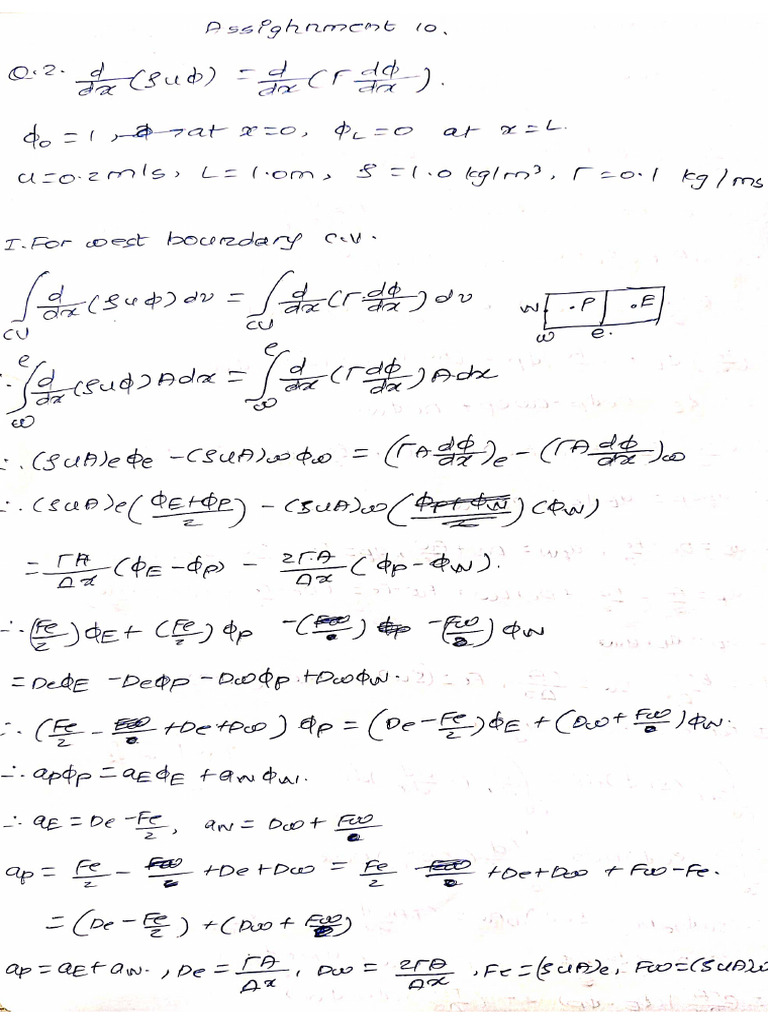 Assighnment 10.
Q.2. d/dx (ρuϕ) = d/dx (Γ dϕ/dx).
ϕ0 = 1, at x=0, ϕL=0 at x=L.
u=0.2m/s, L=1.0m, ρ=1.0 kg/m³, Γ=0.1 kg/ms
I. For west boundary c.v.
∫CV d/dx (ρuϕ) dv = ∫CV d/dx (Γ dϕ/dx) dv
W .P .E
w e.
∴ ∫w^e d/dx (ρuϕ) A dx = ∫w^e d/dx (Γ dϕ/dx) A dx
∴ (ρuA)e ϕe - (ρuA)w ϕw = (ΓA dϕ/dx)e - (ΓA dϕ/dx)w
∴ (ρuA)e ((ϕE+ϕP)/2) - (ρuA)w (ϕW)
= ΓA/Δx (ϕE-ϕP) - 2Γ.A/Δx (ϕP-ϕW).
∴ (Fe/2) ϕE + (Fe/2) ϕP - (Fw) ϕW
= DeϕE - DeϕP - DwϕP + DwϕW.
∴ (Fe/2 + De + Dw) ϕP = (De - Fe/2) ϕE + (Dw + Fw) ϕW.
∴ aPϕP = aEϕE + aWϕW.
∴ aE = De - Fe/2, aW = Dw + Fw
aP = Fe/2 + De + Dw = Fe/2 + De + Dw + Fw - Fe.
= (De - Fe/2) + (Dw + Fw)
aP = aE + aW., De = ΓA/Δx, Dw = 2ΓA/Δx, Fe=(ρuA)e, Fw=(ρuA)w